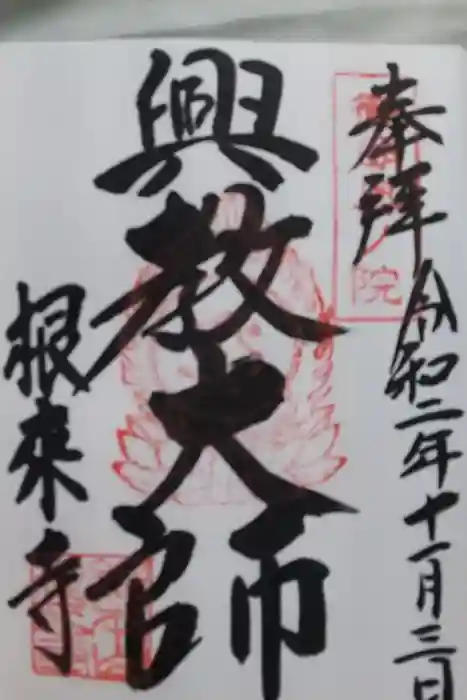 奉拜
令和二年十一月三日
興教大師
根來寺
院